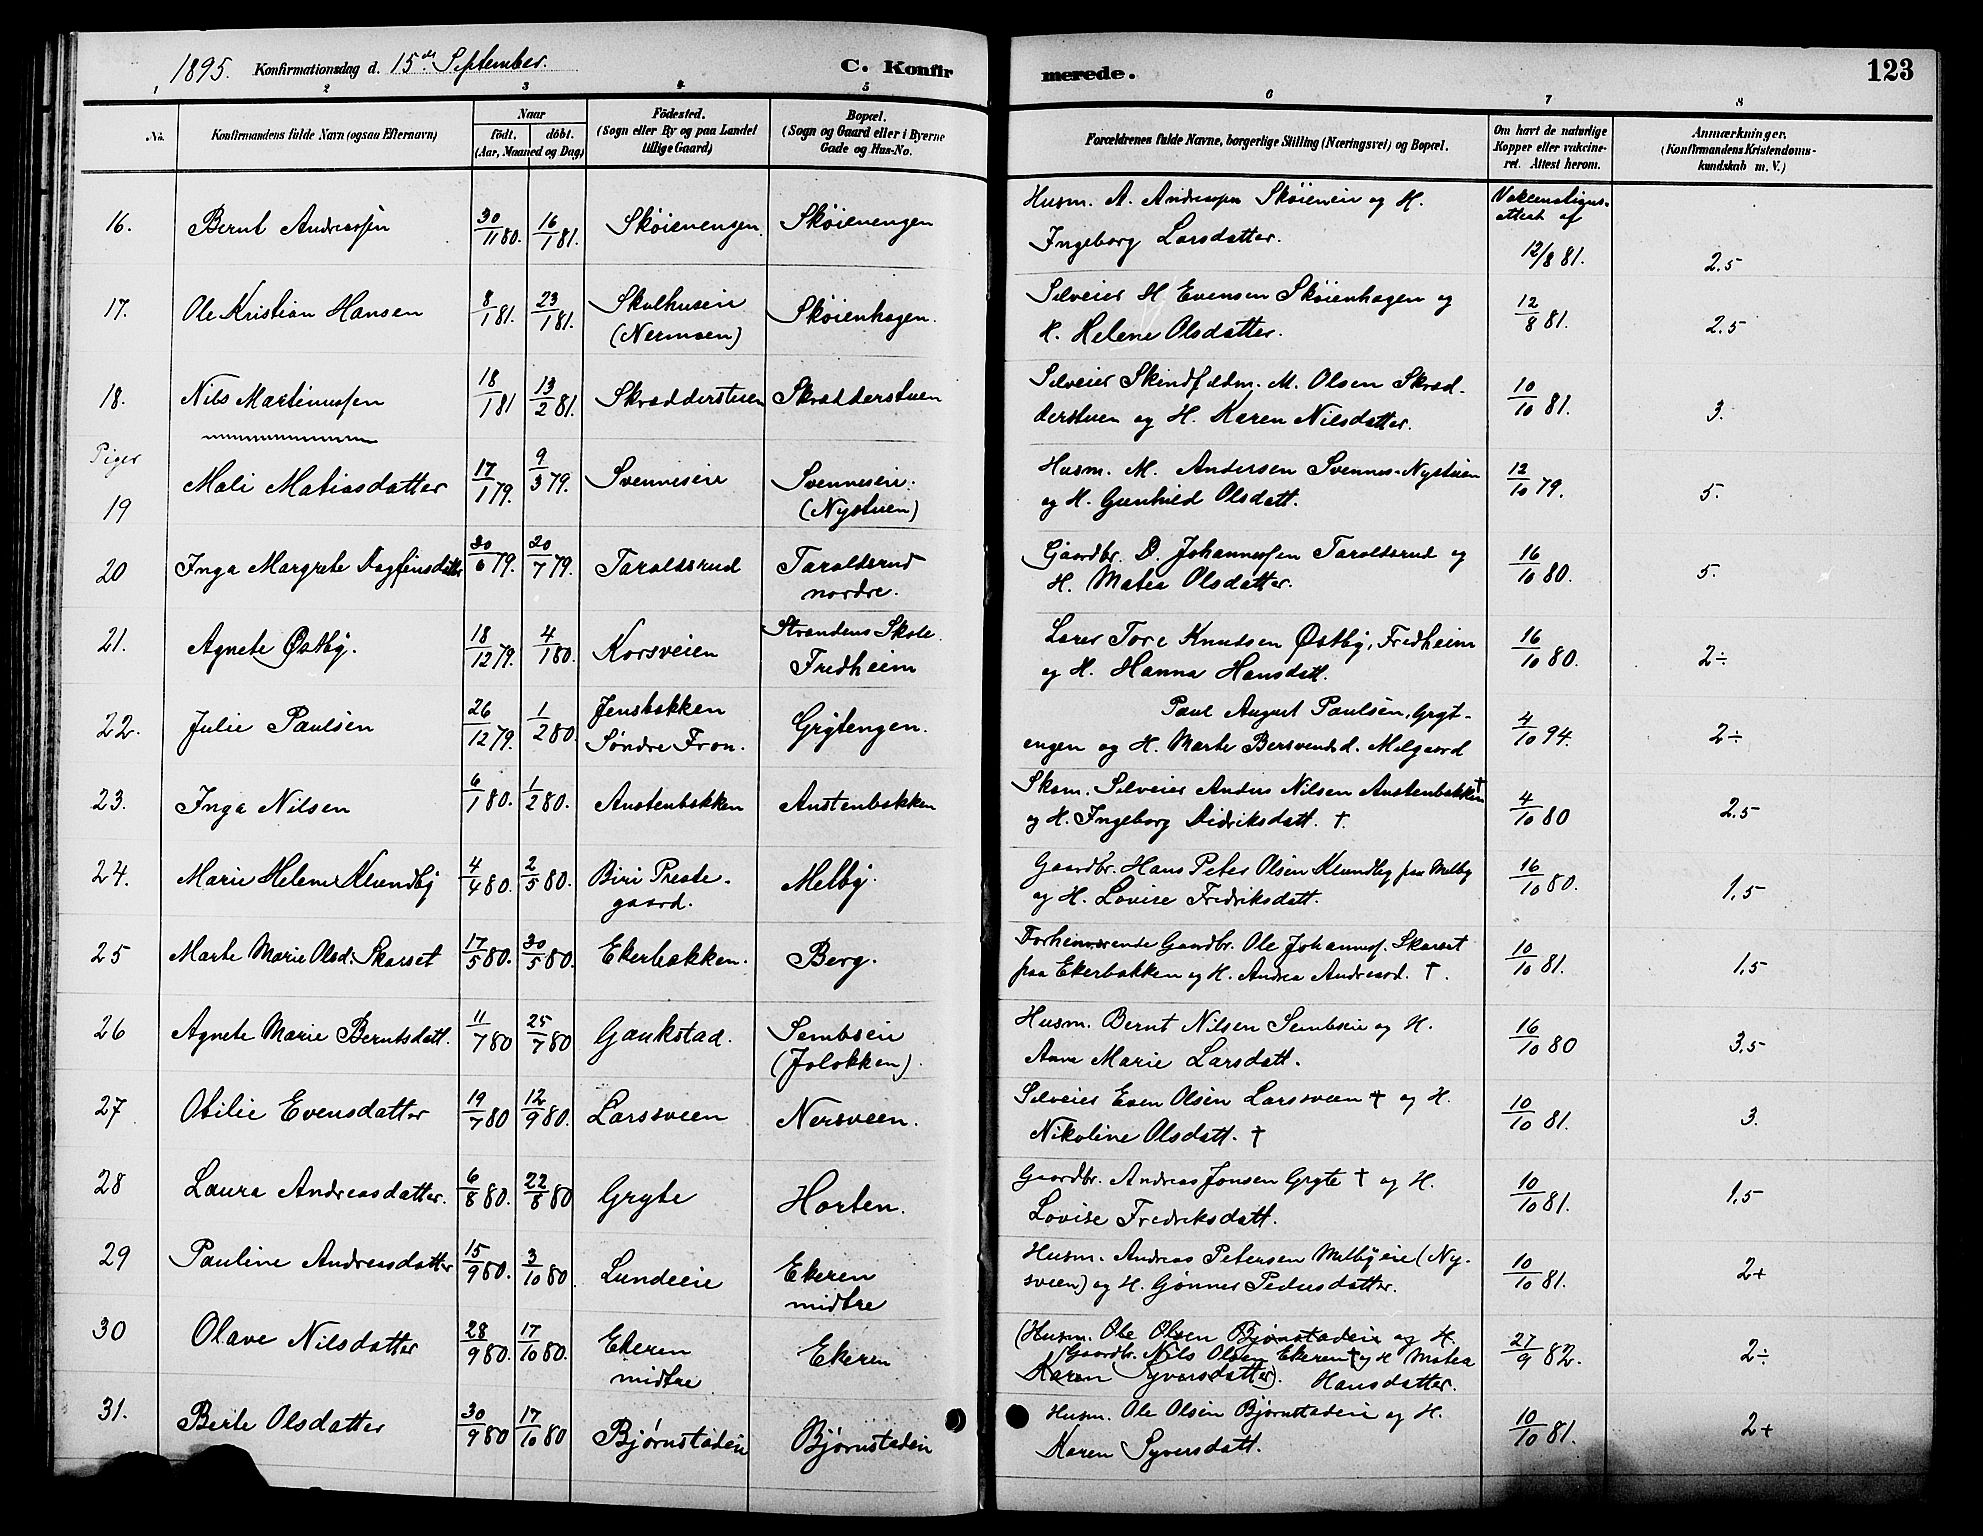 1895. Konfirmationsdag d. 15de September.
C. Konfirmerede.
123
1 2 3 4 5 6 7 8
No.
Konfirmandens fulde Navn (ogsaa Efternavn)
Naar
födt. döbt.
(Aar, Maaned og Dag)
Födested.
(Sogn eller By og paa Landet
tillige Gaard)
Bopæl.
(Sogn og Gaard eller i Byerne
Gade og Hus-No.
Forældrenes fulde Navne, borgerlige Stilling (Næringsvei) og Bopæl.
Om havt de naturlige
Kopper eller vakcine-
ret. Attest herom.
Anmærkninger.
(Konfirmandens Kristendoms-
kundskab m. V.)
16. Bernt Andreassen 30/11 80. 16/1 81. Skøienengen. Skøienengen
Husm. A. Andreassen Skøieneie og H.
Ingeborg Larsdatter.
Vakcinations-
attest af
12/8 81. 2.5
17. Ole Kristian Hansen 8/1 81. 23/1 81. Skulhuseie
(Nermoen) Skøienhagen.
Selveier H. Evensen Skøienhagen og
H. Helene Olsdatter. 12/8 81. 2.5
18. Nils Martinussen 18/1 81 13/2 81. Skrædderstuen Skrædderstuen
Selveier Skindfeldm. M. Olsen Skræd-
derstuen og H. Karen Nilsdatter. 10/10 81. 3.
Piger
19 Mali Matiasdatter 17/1 79. 9/3 79. Svenneseie Svenneseie.
(Nystuen)
Husm. M. Andersen Svennes-Nystuen
og H. Gunhild Olsdatt. 12/10 79. 5.
20 Inga Margrete Dagfinsdatter 30/6 79. 20/7 79. Taroldsrud Taroldsrud
nordre.
Gaardbr. D. Johannessen Taroldsrud og
H. Matea Olsdatter. 16/10 80. 5.
21. Agnete Østby. 18/12 79. 4/1 80. Korsveien Strandens Skole.
Fredheim
Lærer Tore Knudsen Østby, Fredheim
og H. Hanna Hansdatt. 16/10 80. 2÷
22. Julie Paulsen 26/12 79. 1/2 80. Jensbakken
Søndre Fron. Grytengen.
Paul August Paulsen, Gryt-
engen og H. Marte Bersvendsd. Melgaard 4/10 94. 2÷
23. Inga Nilsen 6/1 80. 1/2 80. Austenbakken Austenbakken
Skom. Selveier Anders Nilsen Austenbakken †
og H. Ingeborg Didriksdatt. †. 4/10 80 2.5
24. Marie Helene Klundby 4/4 80. 2/5 80. Biri Preste-
gaard. Melby.
Gaardbr. Hans Peter Olsen Klundby paa Melby
og H. Lovise Fredriksdatt. 16/10 80. 1,5
25 Marte Marie Olsd. Skarset 17/5 80. 30/5 80. Ekerbakken. Berg.
Forhenværende Gaardbr. Ole Johanness. Skarset
paa Ekerbakken og H. Andrea Andreasd. †. 10/10 81. 1,5
26 Agnete Marie Berntsdatt. 11/7 80 25/7 80 Gaukstad. Sembseie
(Joløkken).
Husm. Bernt Nilsen Sembseie og H.
Anne Marie Larsdatt. 16/10 80 3,5
27 Otilie Evensdatter 19/7 80 12/9 80. Larsveen Nersveen.
Selveier Even Olsen Larsveen † og H.
Nikoline Olsdatt. † 10/10 81. 3.
28 Laura Andreasdatter. 6/8 80. 22/8 80 Gryte Horten.
Gaardbr. Andreas Jonsen Gryte † og H.
Lovise Fredriksdatt. 10/10 81. 1,5
29 Pauline Andreasdatter 15/9 80. 3/10 80. Lundeeie Ekeren
midtre
Husm. Andreas Petersen Melbyeie (Ny-
sveen) og H. Gønner Pedersdatter. 10/10 81. 2+
30 Olave Nilsdatter 28/9 80. 17/10 80. Ekeren
midtre Ekeren
(Husm. Ole Olsen Bjørnstadeie og H.
Gaardbr. Nils Olsen Ekeren † og H Matea
Karen Syversdatter). Hansdatter. 27/9 82. 2÷
31. Berte Olsdatter 30/9 80 17/10 80 Bjørnstadeie Bjørnstadeie
Husm. Ole Olsen Bjørnstadeie og H.
Karen Syversdatt. 10/10 81. 2+